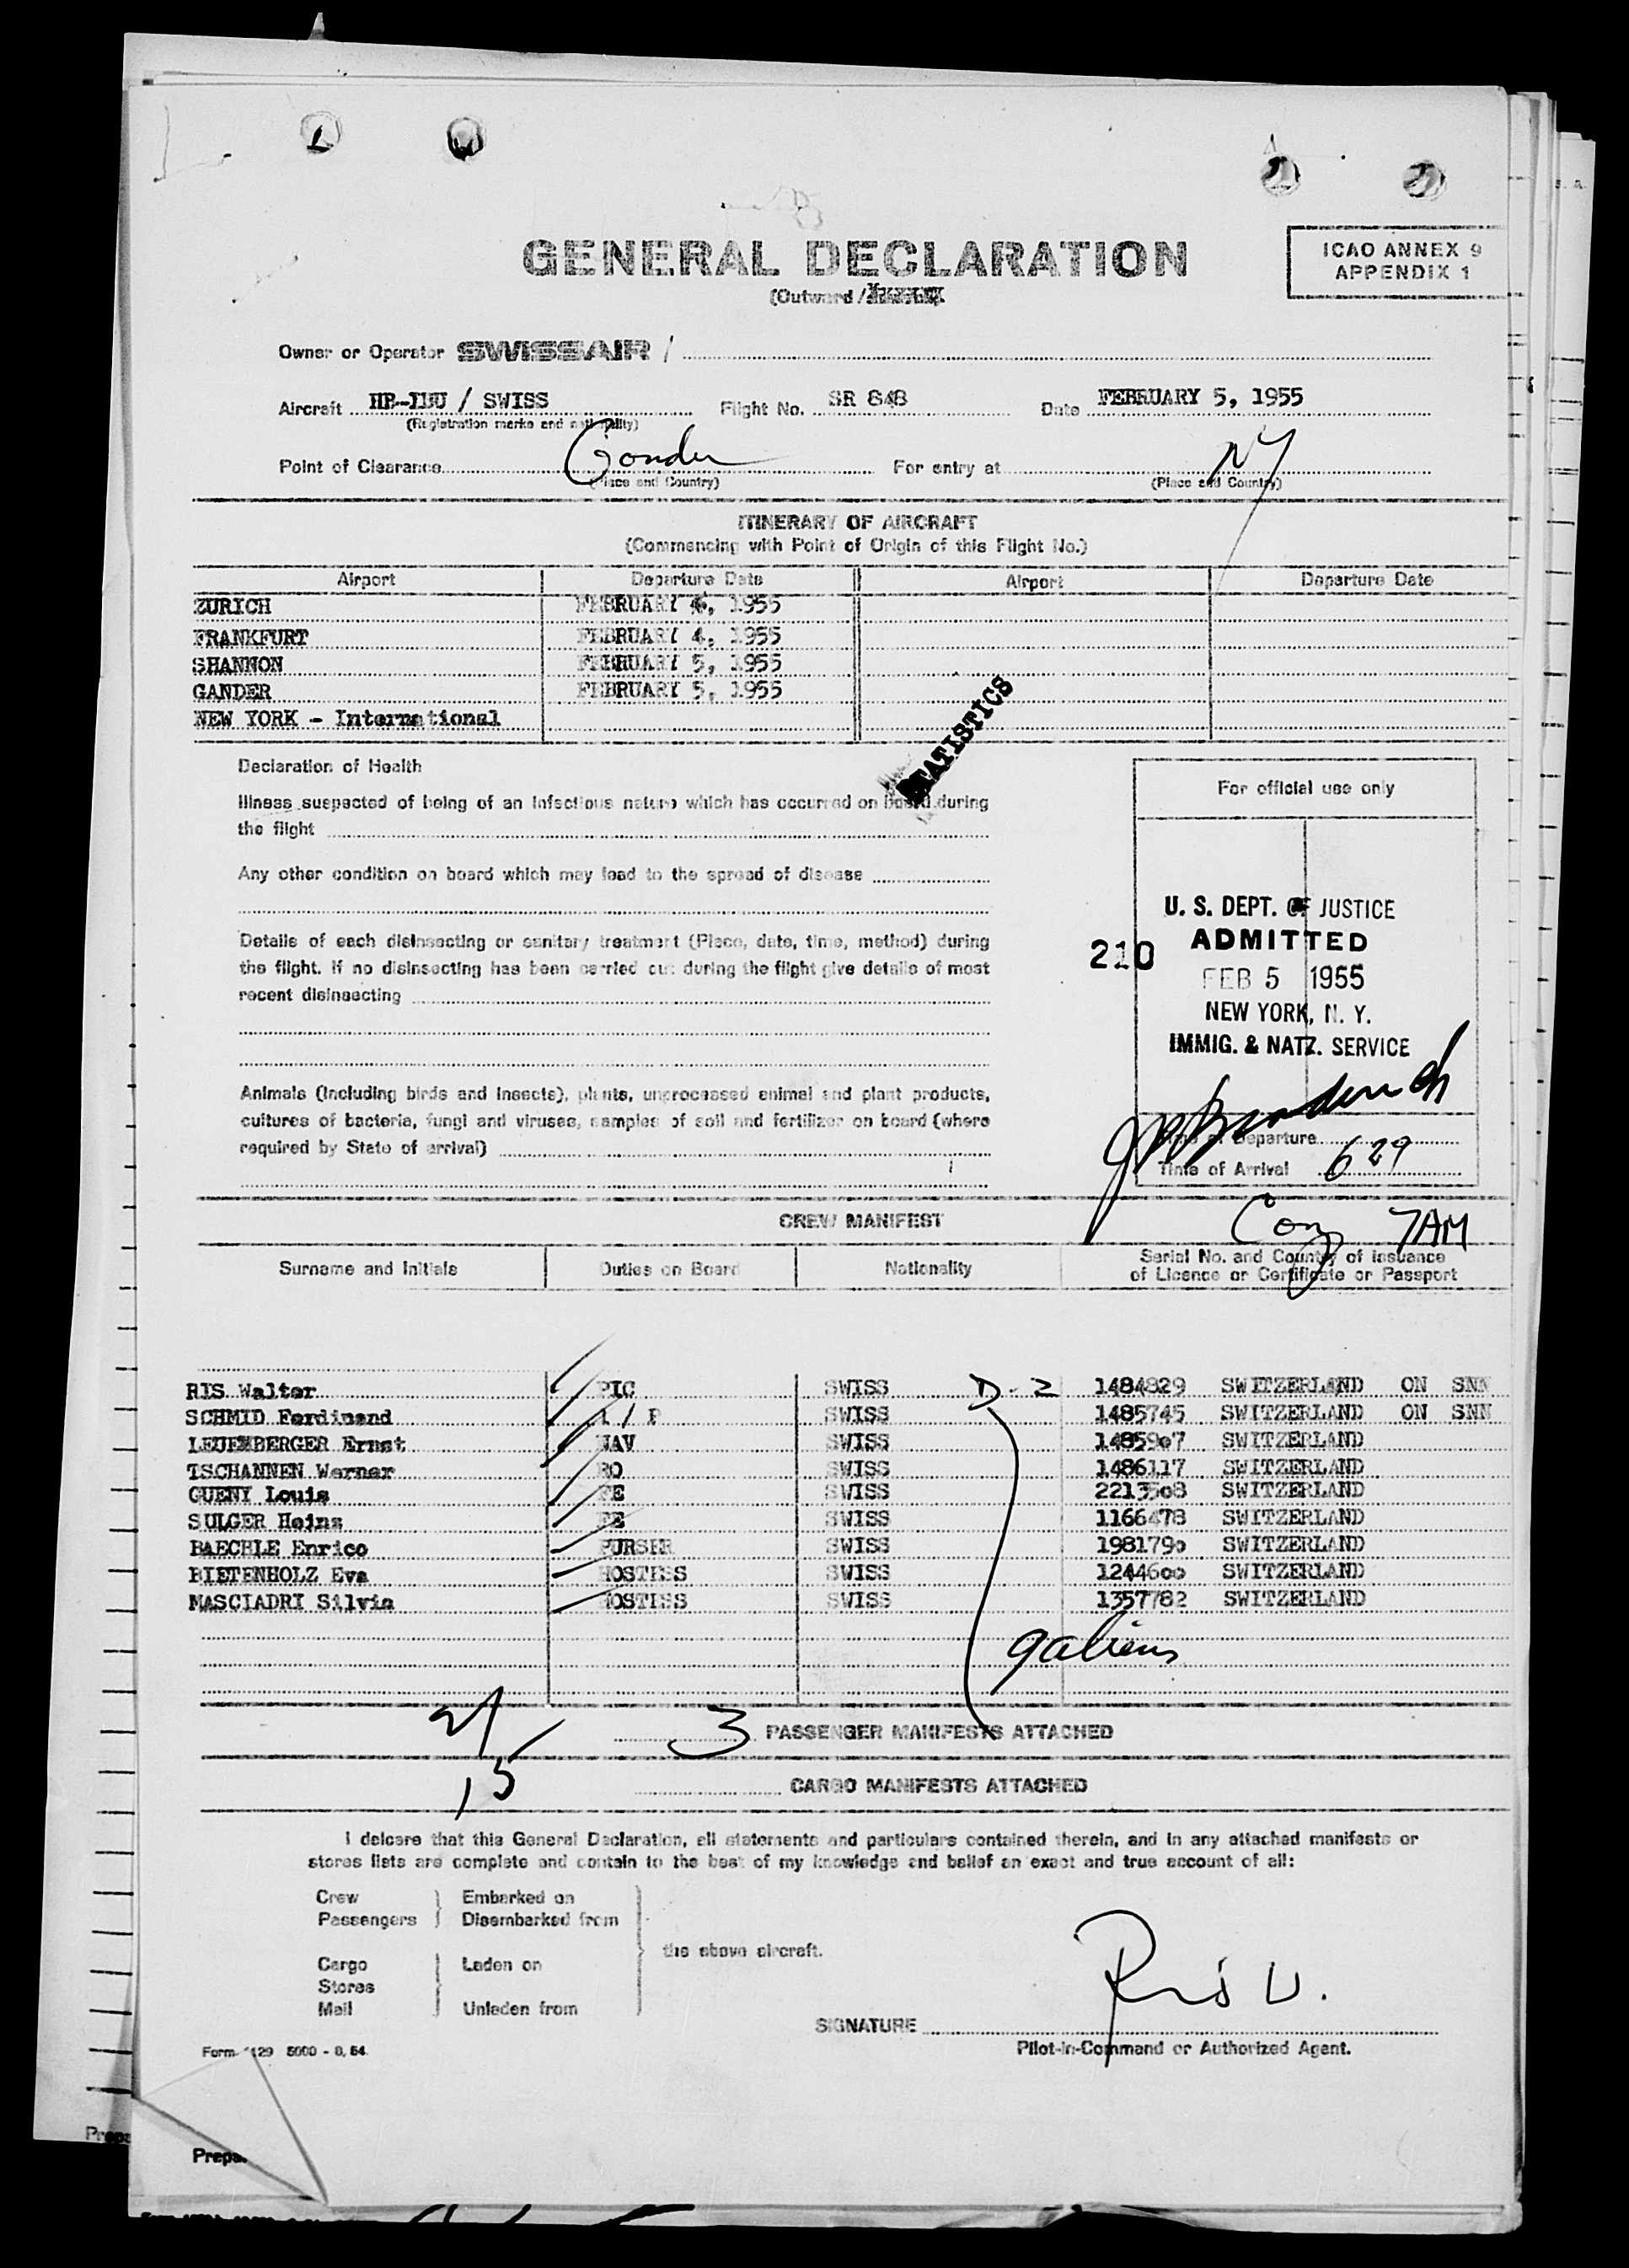 GENERAL DECLARATION
(Outward /
ICAO ANNEX 9
APPENDIX 1
Owner or Operator SWISSAIR /
Aircraft / SWISS Flight No. SR 848 Date FEBRUARY 5, 1955
(Registration marks and nationality)
Point of Clearance Gander For entry at NY
(Place and Country) (Place and Country)
ITINERARY OF AIRCRAFT
(Commencing with Point of Origin of this Flight No.)
Airport Departure Date Airport Departure Date
ZURICH FEBRUARY 4, 1955
FRANKFURT FEBRUARY 4, 1955
SHANNON FEBRUARY 5, 1955
GANDER FEBRUARY 5, 1955
NEW YORK - International
STATISTICS
Declaration of Health
Illness suspected of being of an infectious nature which has occurred on board during
the flight
Any other condition on board which may lead to the spread of disease
Details of each disinsecting or sanitary treatment (Place, date, time, method) during
the flight. If no disinsecting has been carried out during the flight give details of most
recent disinsecting
Animals (including birds and insects), plants, unprocessed animal and plant products,
cultures of bacteria, fungi and viruses, samples of soil and fertilizer on board (where
required by State of arrival)
For official use only
U. S. DEPT. OF JUSTICE
210 ADMITTED
FEB 5 1955
NEW YORK, N. Y.
IMMIG. & NATZ. SERVICE
Time of Departure
Time of Arrival 629
7AM
CREW MANIFEST
Surname and Initials Duties on Board Nationality Serial No. and Country of Issuance
of Licence or Certificate or Passport
RIS Walter PIC SWISS D-2 1484829 SWITZERLAND ON SNN
SCHMID Ferdinand SWISS 1485745 SWITZERLAND ON SNN
LEUENBERGER Ernst NAV SWISS 1485907 SWITZERLAND
TSCHANNEN Werner RO SWISS 1486117 SWITZERLAND
GUENY Louis FE SWISS 2213508 SWITZERLAND
SULGER Heinz FE SWISS 1166478 SWITZERLAND
BAECHLE Enrico PURSER SWISS 1981790 SWITZERLAND
BIETENHOLZ Eva HOSTESS SWISS 1244600 SWITZERLAND
MASCIADRI Silvia HOSTESS SWISS 1357782 SWITZERLAND
9 aliens
3 PASSENGER MANIFESTS ATTACHED
15
CARGO MANIFESTS ATTACHED
I delcare that this General Declaration, all statements and particulars contained therein, and in any attached manifests or
stores lists are complete and contain to the best of my knowledge and belief an exact and true account of all:
Crew Embarked on
Passengers Disembarked from
the above aircraft.
Cargo Laden on
Stores
Mail Unladen from
Ris W.
SIGNATURE
Pilot-in-Command or Authorized Agent.
Form 5000 - 8, 54